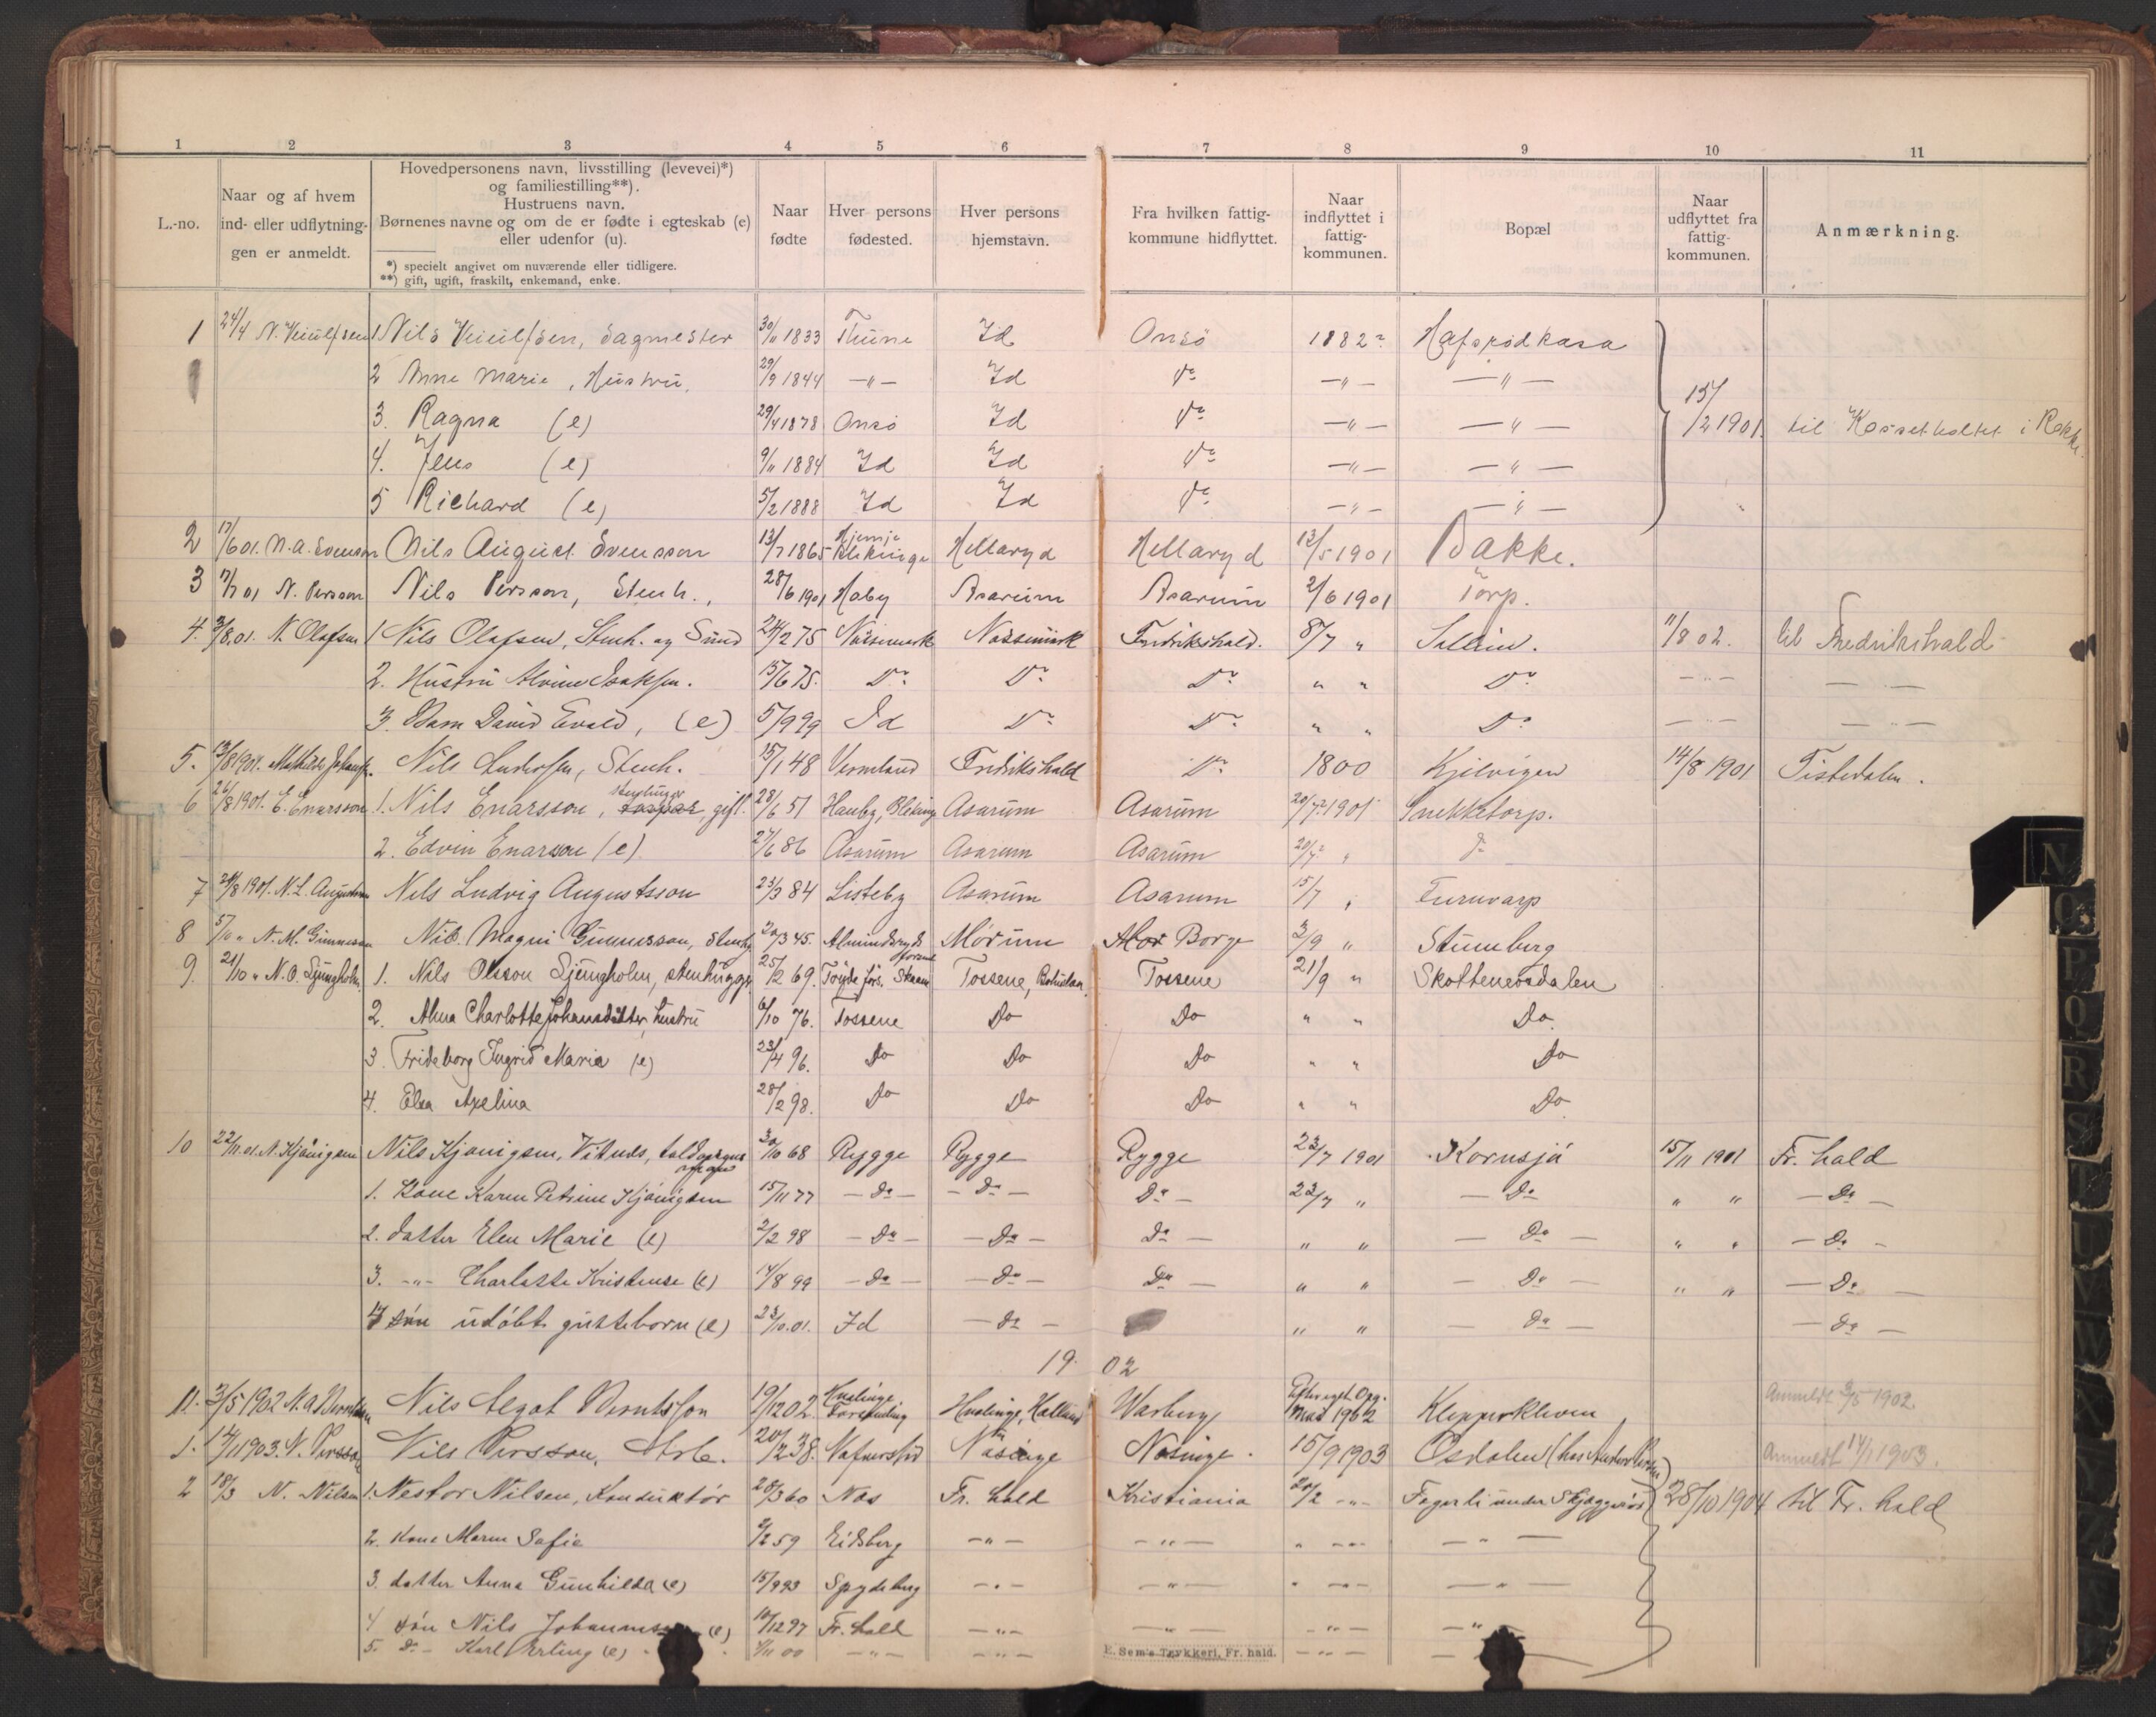 1 2 3 4 5 6 7 8 9 10 11
L.-no.
Naar og af hvem
ind- eller udflytnin-
gen er anmeldt.
Hovedpersonens navn, livsstilling (levevei)*)
og familiestilling**).
Hustruens navn.
Børnenes navne og om de er fødte i egteskab (e)
eller udenfor (u).
*) specielt angivet om nuværende eller tidligere.
**) gift, ugift, fraskilt, enkemand, enke.
Naar
fødte
Hver persons
fødested.
Hver persons
hjemstavn.
Fra hvilken fattig-
kommune hidflyttet.
Naar
indflyttet i
fattig-
kommunen.
Bopæl
Naar
udflyttet fra
fattig-
kommunen.
Anmærkning.
1 24/4 1 Nils sagmester 30/11 1833 Thune Id Onsö 1882 Hafsrødkasa
2 Anne Marie, Hustru. 29/9 1844 —"— Id Do —"— —"—
3. Ragna (e) 29/4 1878 Onsö Id Do —"— —"— 15/2 1901. til i Rokke.
4. Jens (e) 9/11 1884 Id Id Do —"— —"—
5 Richard (e) 5/2 1888 Id Id Do —"— —"—
2 17/6 01. N. A. Svenson Nils August Svensson 13/7 1865 Blekinge Hellaryd Hellaryd 13/5 1901 Bakke.
3 7/7 01 N. Persson Nils Persson, Stenh., 28/6 1901 Hoby Asarum Asarum 2/6 1901 Torp.
4. 3/8.01. N. Olafsen 1 Nils Olafsen, Stenh. og Smed 24/2 75 Nössemark Nössemark Fredrikshald. 8/7 " 11/8 02. til Fredrikshald
2. Hustru Alvine Isaksen. 15/6 75. Do Do Do " " Do —"— —"—
3. Barn David Evald, (e) 5/9 99 Id Do Do " " Do —"— —"—
5. 13/8 1901. Mathilde Johansen. Nils Stenh. 15/1 48 Vermland Fredrikshald Do 1800 Kjilvigen 14/8 1901 Tistedalen.
6 26/8 1901. E. Enarsson 1. Nils Enarsson, stenhugger, gift. 28/6 51 Blekinge Asarum Asarum 20/7 1901 Snekketorp.
2. Edvin Enarsson (e) 27/6 86 Asarum Asarum Asarum 20/7 " Do
7 24/8 1901. N. L. Augustsson Nils Ludvig Augustsson 23/3 84 Listeby Asarum Asarum 15/7 "
8 5/10 " N. M. Gunnesson Nils Magni Gunnesson, stenh. 20/3 45. Mörum Borge 3/9 " Stumberg
9. 21/10 " N. O. Ljungholm 1. Nils Olsson Ljungholm, stenhugger 25/2 69. Skaane Tossene, Bohuslän Tossene 21/9 " Skotteneosdalen
2. Alma Charlotte Johansdatter, hustru 6/10 76. Tossene Do Do " " Do
3. Frideborg Ingrid Maria (e) 23/4 96. Do Do Do " " Do
4. Elsa Axelina 28/2 98. Do Do Do " " Do
10 22/11.01. N. Kjønigsen Nils Kjønigsen, 30/10 68 Rygge Rygge Rygge 23/7 1901 Kornsjø 15/11 1901 Fr. hald
1. Kone Karen Petrine Kjønigsen 15/11 77 —Do— —Do— Do— 23/7 " —Do " " —Do—
2. datter Elen Marie (e) 2/2 98 —Do— —Do— Do— " " —Do— " " —Do—
3. —"— Charlotte Kristense (e) 14/8 99 —Do— —Do— Do— " " —Do— " " —Do—
4 søn udøbt gutteborn (e) 23/10.01. Id —Do— " " —Do— —Do—
19 02
11. 3/5 1902 N. A. Berntsson Nils Algot Berntsson 19/12 02. Halland Warberg 1902 Klepperkleven Anmeldt 3/5 1902.
1. 14/1 1903. N. Persson Nils Persson, Arb. 20/2 38. Näsinge Näsinge. 15/9 1903 Osdalen Anmeldt 14/1 1903.
2 18/3 N. Nilsen 1. Nestor Nilsen, Konduktør 28/3 60 Nas Fr. hald Kristiania 20/2 —"— Fagerli under 28/10 1904 til Fr. hald
2. Kone Maren Sofie 2/2 59 Eidsberg —"— —"— " —"— —"—
3. datter Anna Gunhilda (e) 15/9 93 Spydeberg —"— —"— " —"— —"—
4 søn Nils (e) 10/12 97 Fr. hald —"— —"— —"— —"—
5. Do— Karl Erling (e) 4/11 00 —"— —"— E. Sem's Trykkeri, Fr. hald. —"—
N O P Q R S T U V W